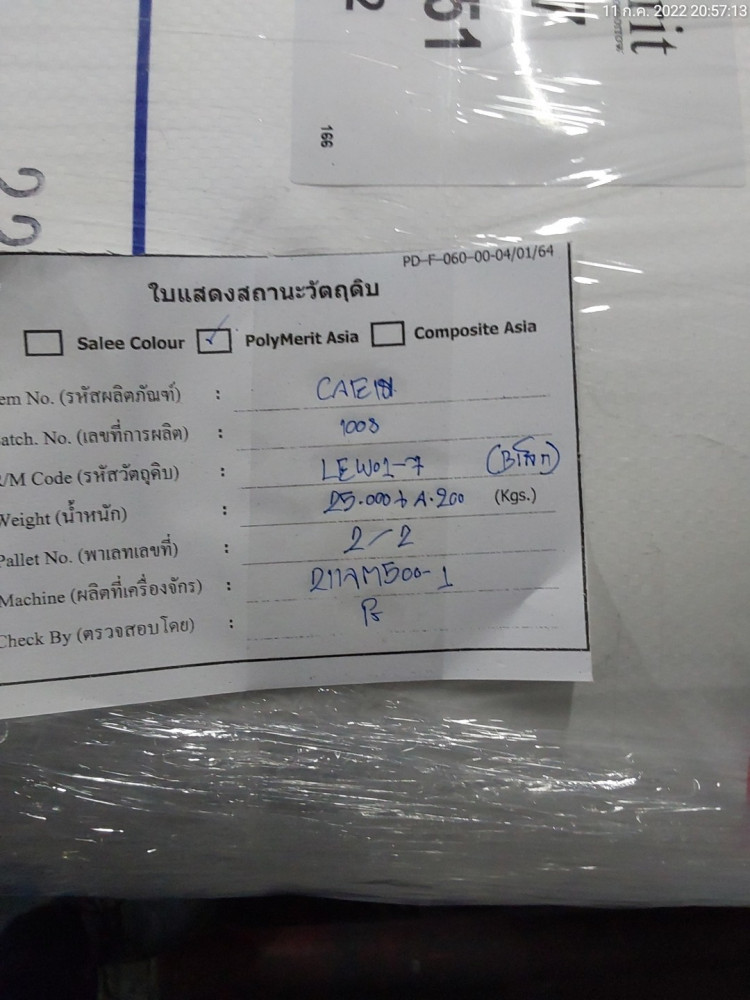 11 ก.ค. 2022 20:57:13
51
166
22
PD-F-060-00-04/01/64
ใบแสดงสถานะวัตถุดิบ
Salee Colour ✓ PolyMerit Asia Composite Asia
em No. (รหัสผลิตภัณฑ์) :
atch. No. (เลขที่การผลิต) : 1008
/M Code (รหัสวัตถุดิบ) : LEW01-7
Weight (น้ำหนัก) : 25.000 + A.200 (Kgs.)
Pallet No. (พาเลทเลขที่) : 2/2
Machine (ผลิตที่เครื่องจักร) :
Check By (ตรวจสอบโดย) :